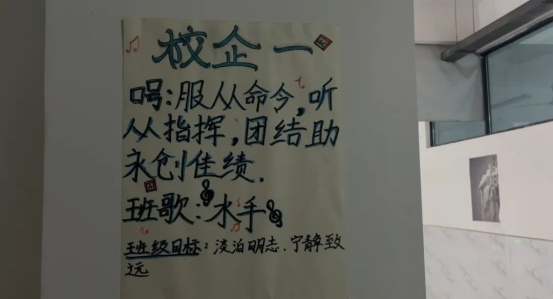 校企一
口号:服从命令,听
从指挥,团结助
永创佳绩.
班歌:水手
班级目标:淡泊明志.宁静致
远